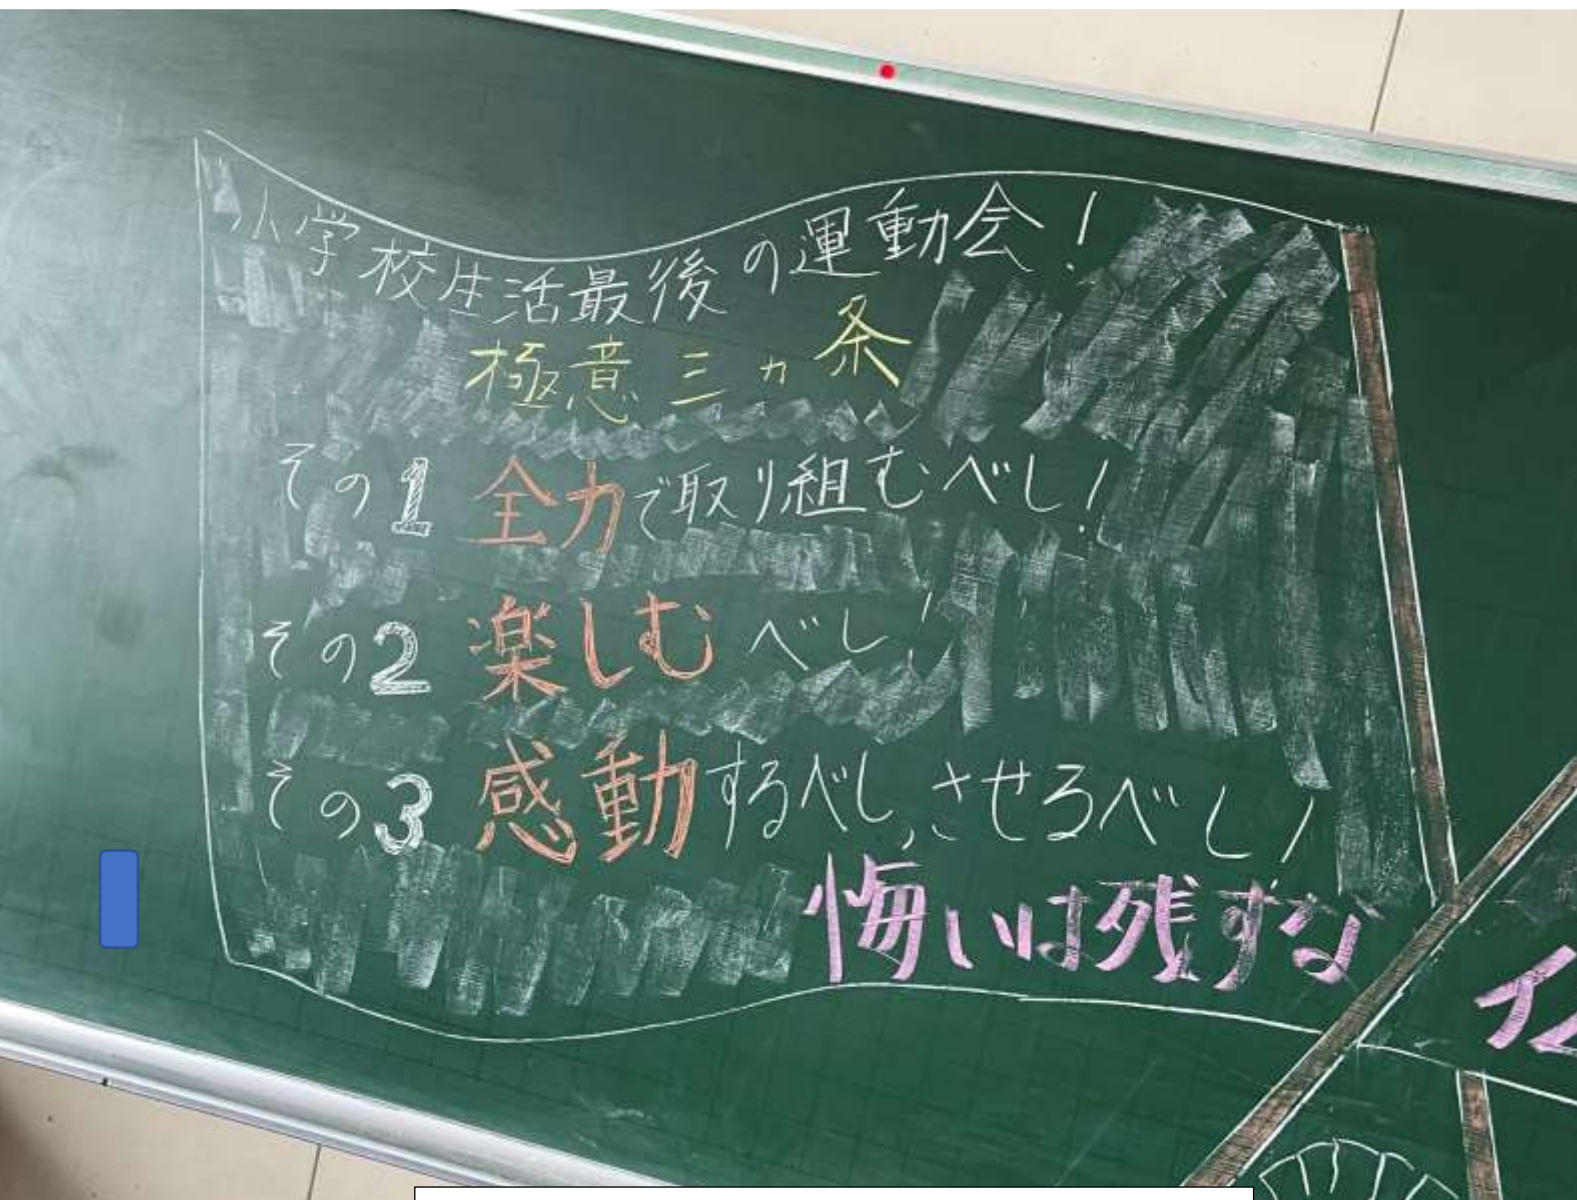 小学校生活最後の運動会!
極意三カ条
その1 全力で取り組むべし!
その2 楽しむべし!
その3 感動するべし,させるべし!
悔いは残すな